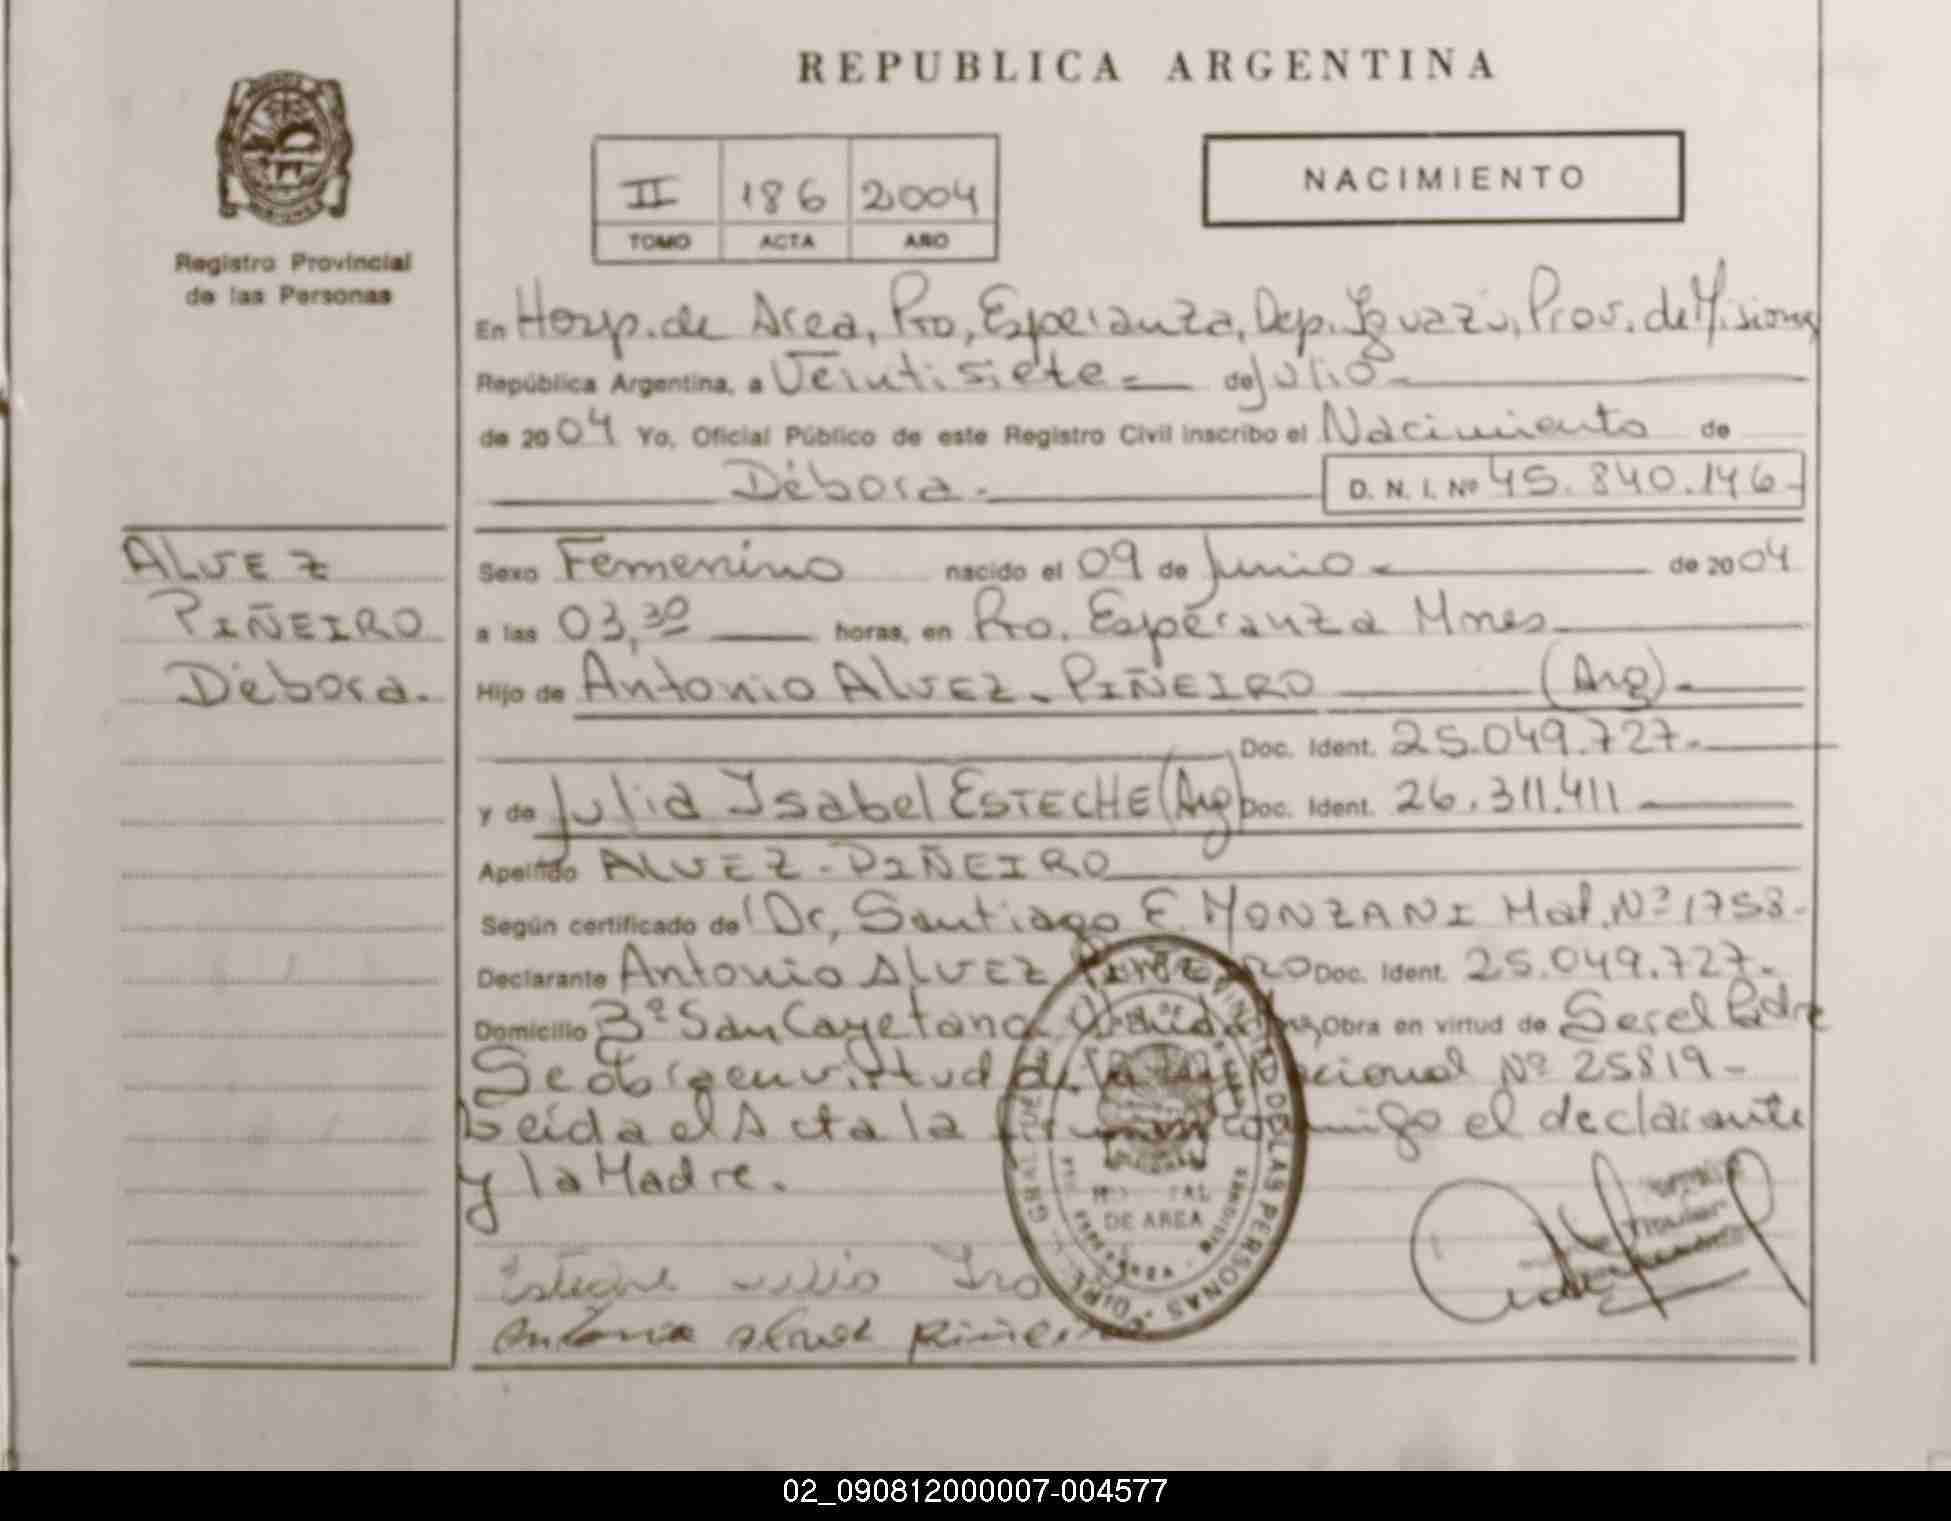 REPUBLICA ARGENTINA
II 186 2004
TOMO ACTA AÑO
NACIMIENTO
Registro Provincial
de las Personas
En Hosp. de Area, Pto, Esperanza, Dep. Iguazú, Prov. de Misiones
República Argentina, a Veintisiete de Julio
de 2004 Yo, Oficial Público de este Registro Civil inscribo el Nacimiento de
Débora.
D. N. I. Nº 45.840.146
ALVEZ
PIÑEIRO
Débora.
Sexo Femenino nacido el 09 de Junio de 2004
a las 03,30 horas, en Pto. Esperanza Mnes
Hijo de Antonio ALVEZ - PIÑEIRO (Arg)
Doc. Ident. 25.049.727
y de Julia Isabel ESTECHE (Arg) Doc. Ident. 26.311.411
Apellido ALVEZ - PIÑEIRO
Según certificado de Dr, Santiago E. MONZANI Mat. Nº 1758
Declarante Antonio ALVEZ PIÑEIRO Doc. Ident. 25.049.727
Domicilio 3º San Cayetano Obra en virtud de Ser el Padre
Se obra en virtud de la Nacional Nº 25819
Leída el Acta la conmigo el declarante
y la Madre.
DE LAS PERSONAS
DE AREA
Antonio Alvez Piñeiro
02_090812000007-004577